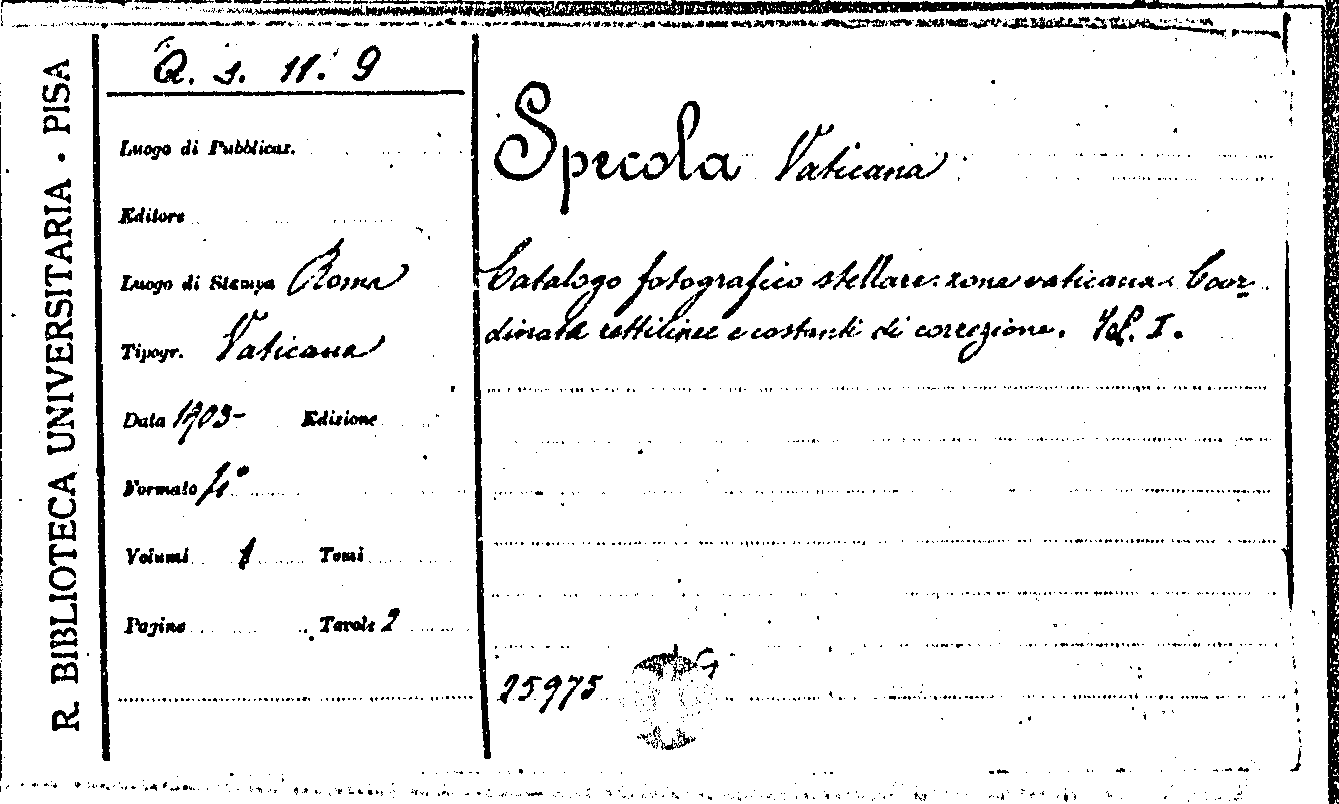 R. BIBLIOTECA UNIVERSITARIA · PISA
Q. s. 11. 9
Luogo di Pubblicaz.
Editore
Luogo di Stampa Roma
Tipogr. Vaticana
Data 1903- Edizione
Formato 4°
Volumi 1 Tomi
Pagine Tavole 2
Specola Vaticana
Catalogo fotografico stellare: zona vaticana. Coor-
dinate rettilinee e costanti di correzione. Vol. I.
25975